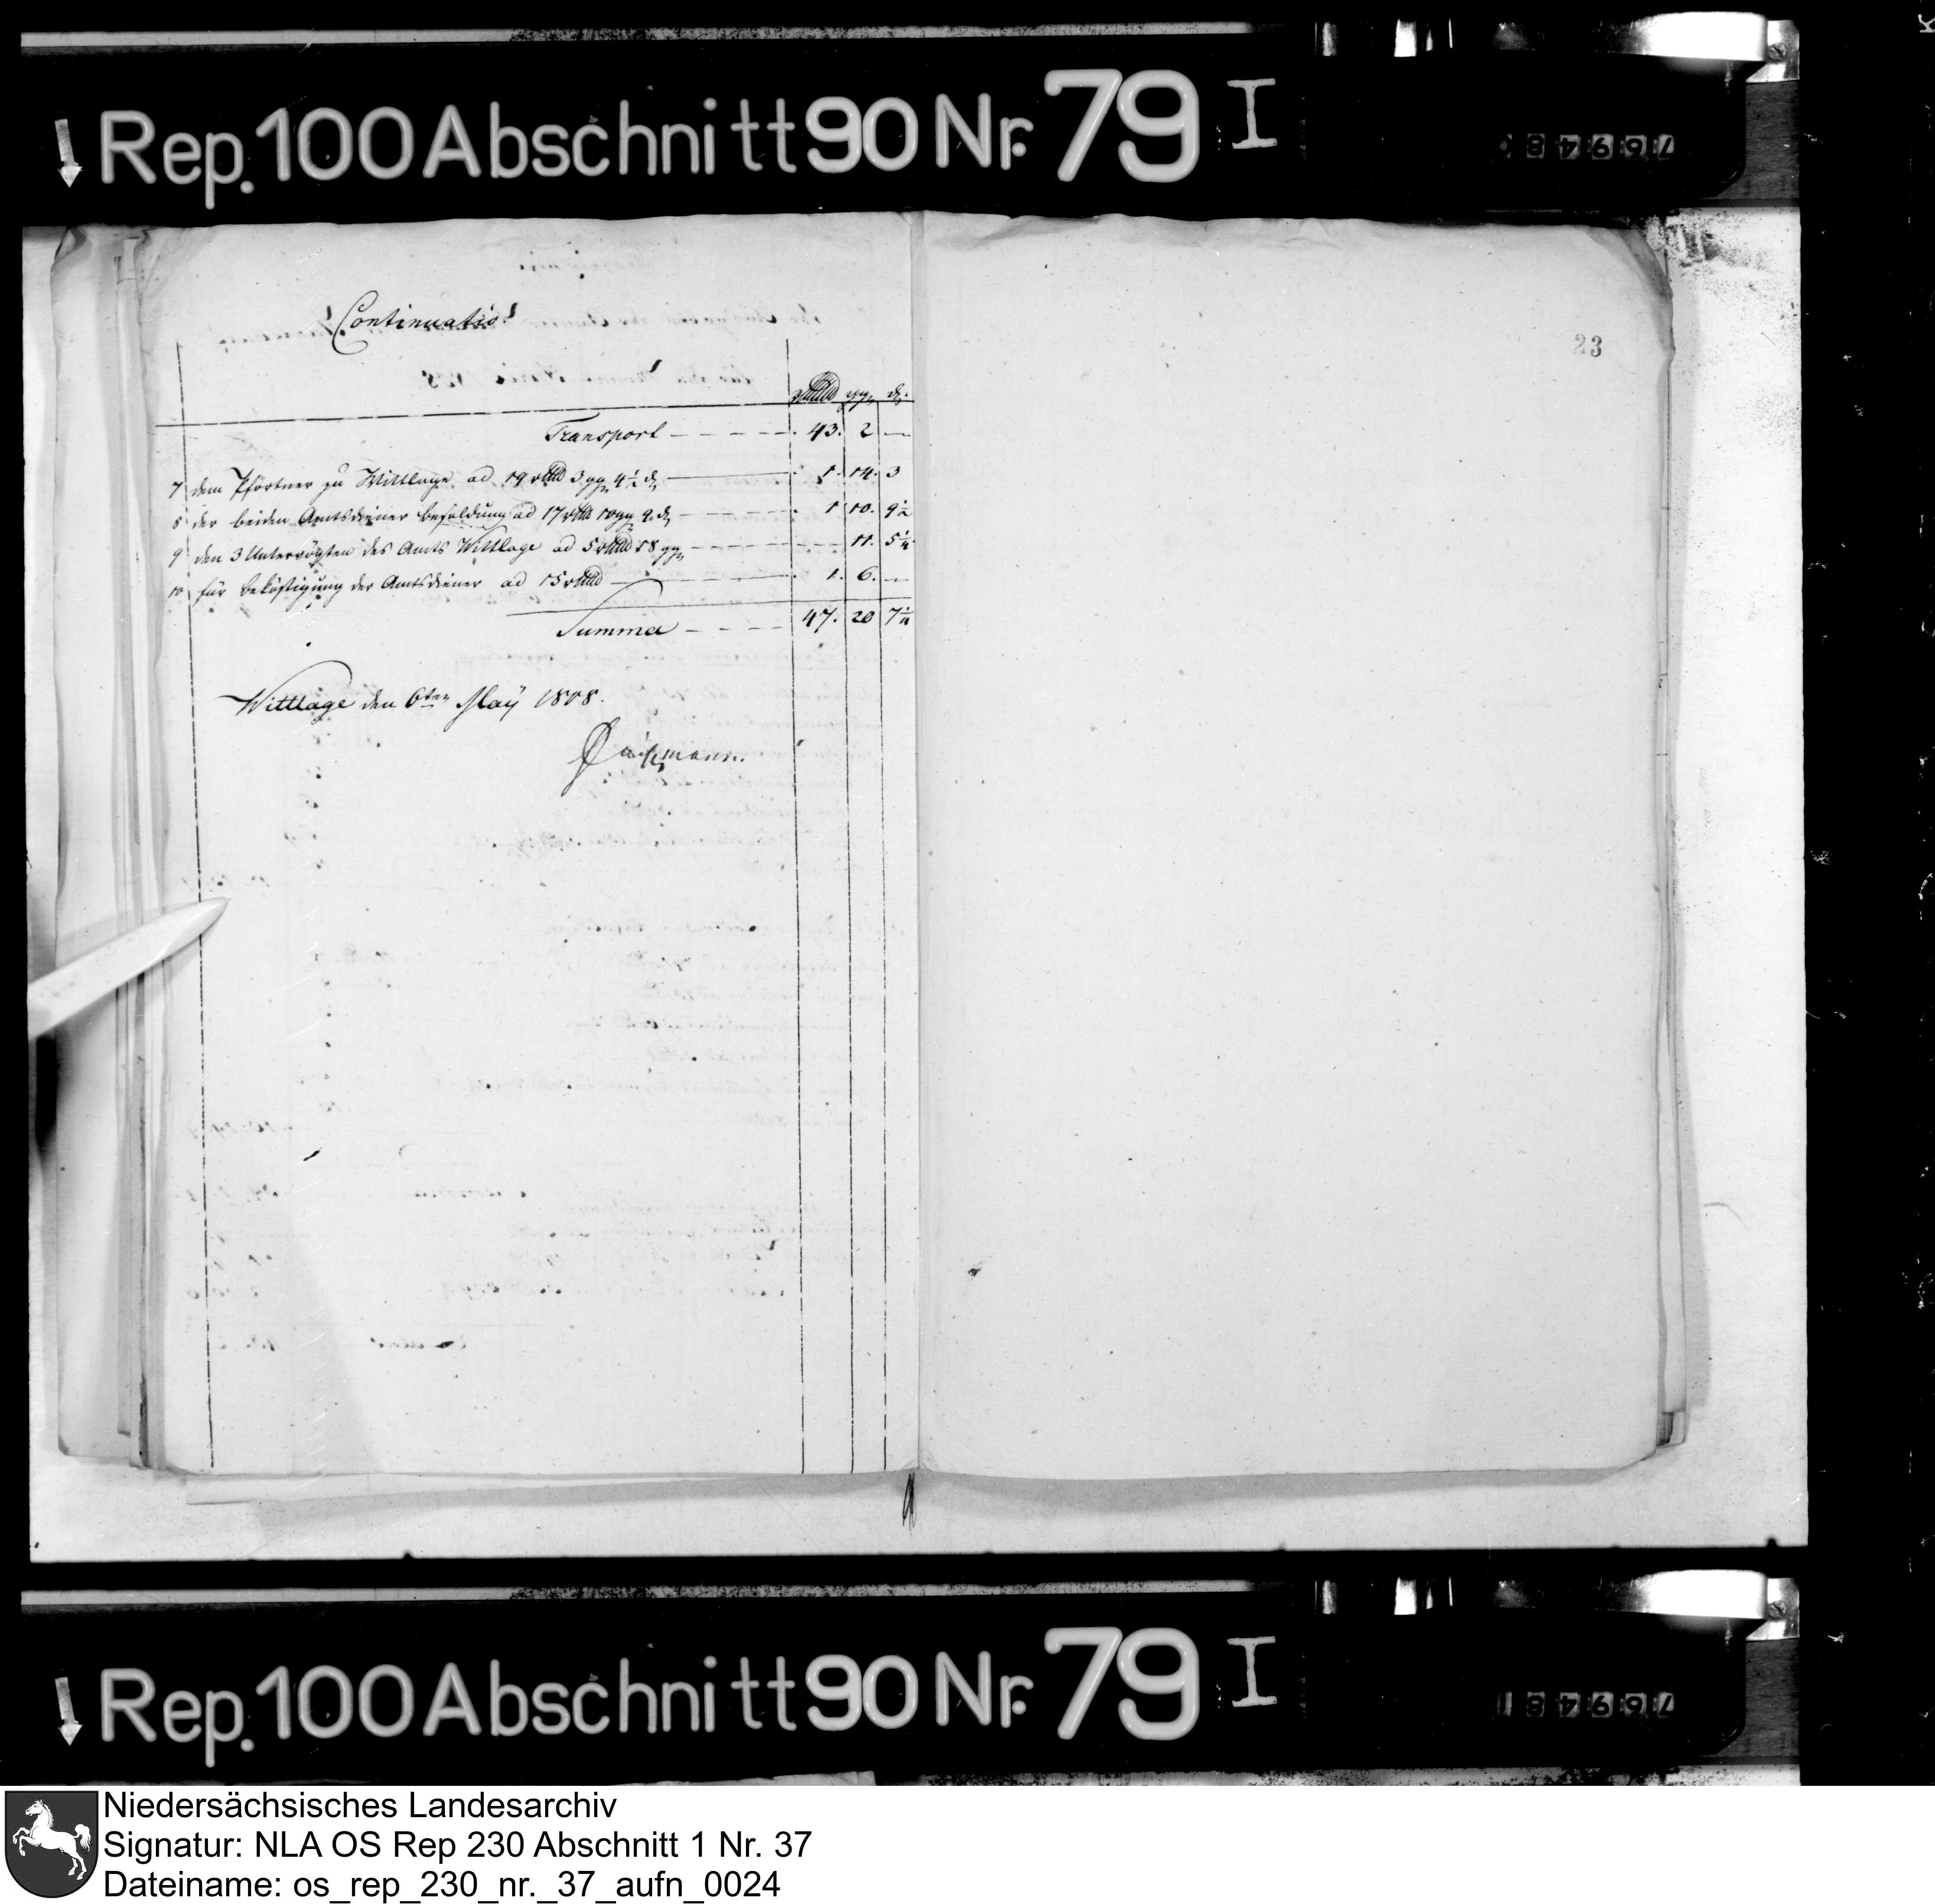 Rep. 100 Abschnitt 90 Nr. 79 I
76948
Continuatio.
23
rthlr ggr d.
Transport - - - - 43. 2 —
7 dem Pförtner zu Wittlage ad 19 rthlr 3 ggr 4½ d — 1. 14. 3
8 der beiden Amtsdiener Besoldung ad 17 rthlr 10 ggr 9. d - - - 1 10. 9½
9 den 3 Untervögten des Amts Wittlage ad 5 rthlr 18 ggr - - - 11. 5¼
10 für Beköstigung der Amtsdiener ad 15 rthlr - - - 1. 6. —
Summa - - - - 47. 20 7¼
Wittlage den 6ten May 1808.
Rep. 100 Abschnitt 90 Nr. 79 I
76948
Niedersächsisches Landesarchiv
Signatur: NLA OS Rep 230 Abschnitt 1 Nr. 37
Dateiname: os_rep_230_nr._37_aufn_0024